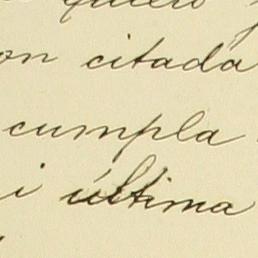 quiero
on citada
cumpla
i última